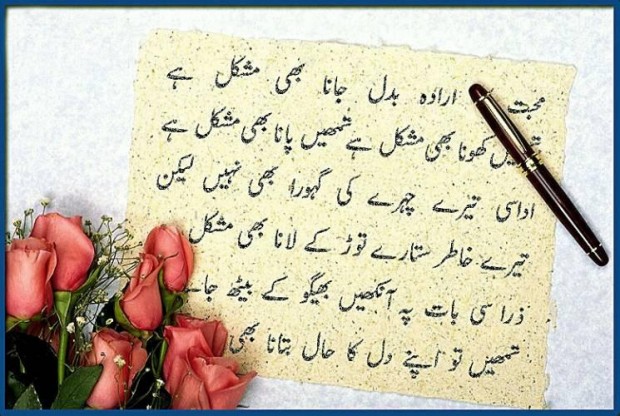 محبت ارادہ بدل جانا بھی مشکل ہے
کھونا بھی مشکل ہے تمھیں پانا بھی مشکل ہے
اداسی تیرے چہرے کی گہورا بھی نہیں لیکن
تیرے خاطر ستارے توڑ کے لانا بھی مشکل
ذرا سی بات پہ آنکھیں بھیگو کے بیٹھ
تمھیں تو اپنے دل کا حال بتانا بھی